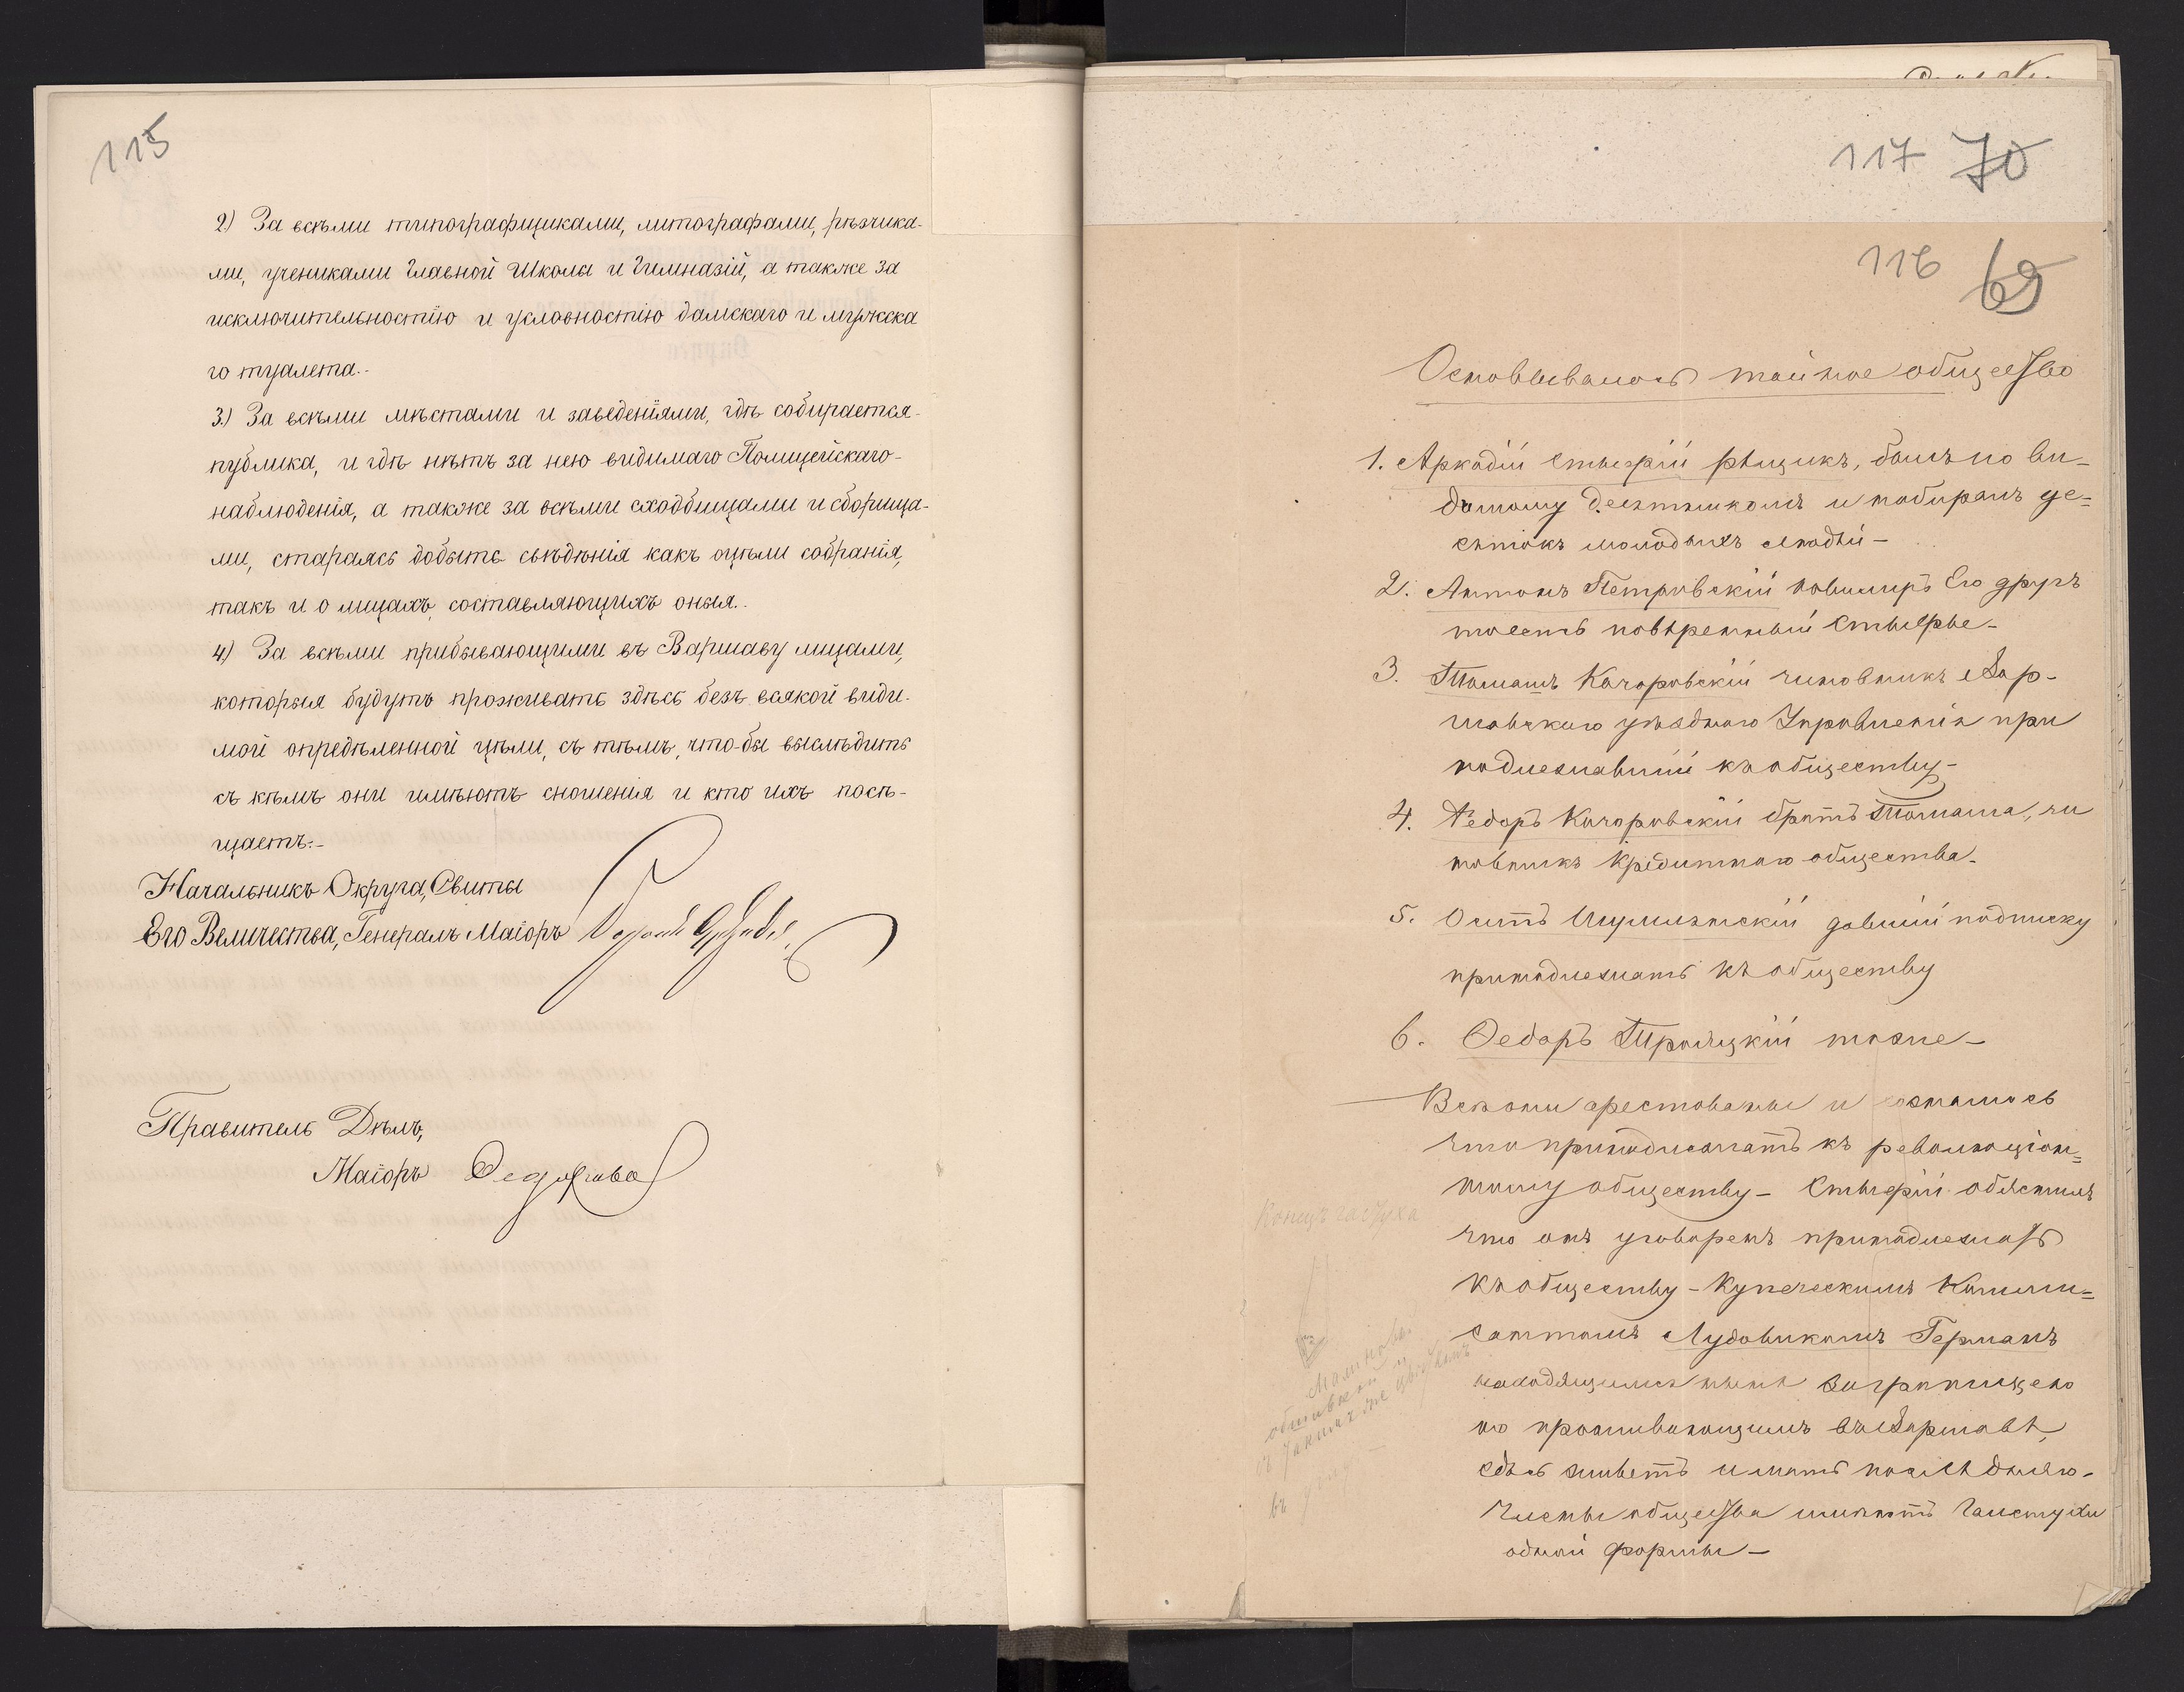 115
2) За всѣми типографщиками, литографами, рѣзчика-
ми, учениками Главной Школы и Гимназій, а также за
исключительностію и условностію дамскаго и мужска
го туалета.-
3.) За всѣми мѣстами и заведеніями, гдѣ собирается-
публика, и гдѣ нѣтъ за нею видимаго Полицейскаго-
наблюденія, а также за всѣми сходбищами и сборища-
ми, стараясь добыть свѣдѣнія какъ о цѣли собранія,
такъ и о лицахъ, составляющихъ оныя..
4) За всѣми прибывающими въ Варшаву лицами,
которыя будутъ проживать здѣсь безъ всякой види-
мой опредѣленной цѣли, съ тѣмъ, что-бы выслѣдить
съ кѣмъ они имѣютъ сношенія и кто ихъ посѣ-
щаетъ.-
Начальникъ Округа, Свиты
Его Величества, Генералъ Маіоръ
Правитель Дѣлъ,
Маіоръ
117 70
116 69
Основывалось тайное общество
1. Аркадій рѣщикъ, былъ по ви-
димому Десятникомъ и набиралъ де=
сятокъ молодыхъ людѣй-
2. Антонъ Петровскій Его другъ
тоесть повѣренный
3. Томашъ Качоровскій чиновникъ Вар-
шавскаго уѣзднаго Управленія при
надлежавшій къ обществу-
4. Ѳедоръ Качоровскій братъ Томаша, чи
новникъ кредитнаго общества-
5. Осипъ давшій подписку
принадлежать къ обществу
6. Ѳедоръ тоже-
Всѣ они арестованы и сознались
что принадлежатъ къ революціон=
ному обществу- объяснилъ
что онъ уговоренъ принадлежать
къ обществу - Купеческимъ Комми=
Лудовикомъ Германъ
находящимся нынѣ заграницею
но проживающимъ въ Варшавѣ,
здѣсь живетъ и мать
Члены общества имѣютъ Галстухи
одной формы-
Конецъ галстуха